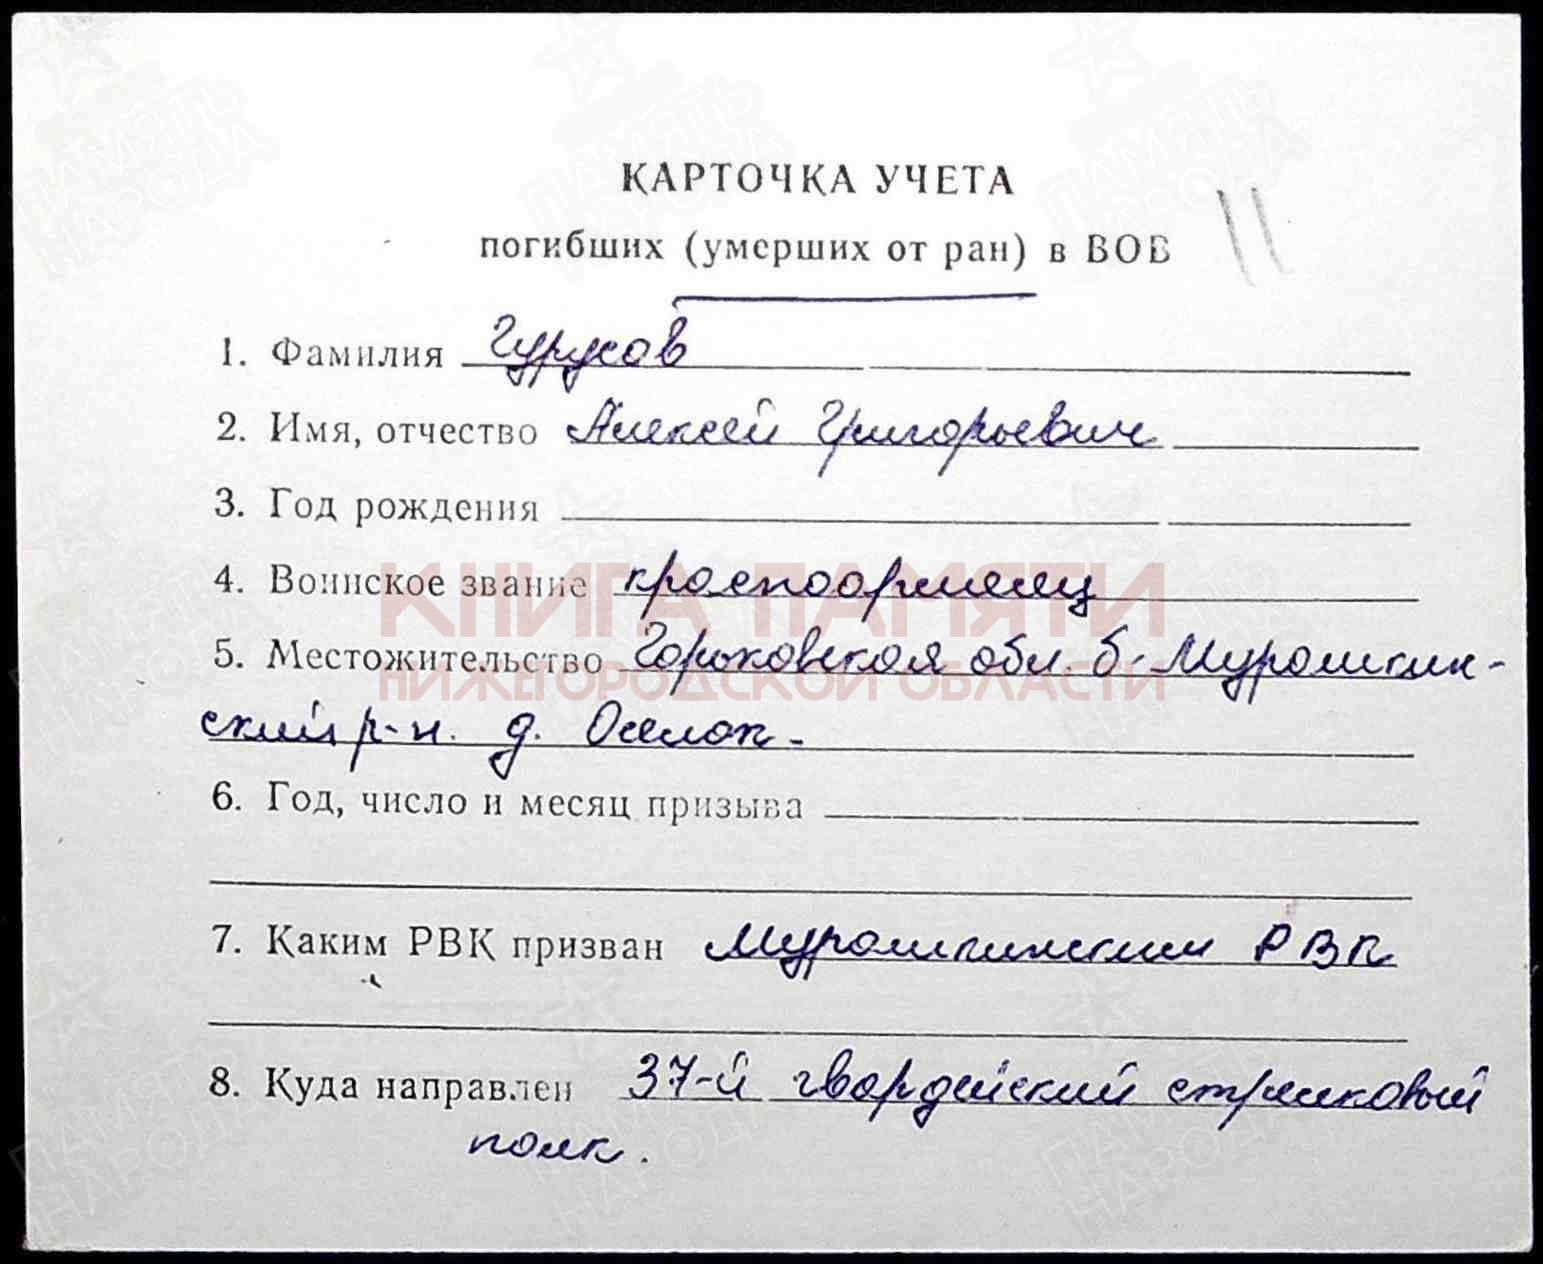 КАРТОЧКА УЧЕТА
погибших (умерших от ран) в ВОВ
11
1. Фамилия Гурусов
2. Имя, отчество Алексей Григорьевич
3. Год рождения
4. Воинское звание красноармеец
5. Местожительство Горьковская обл. б-Мурашкин-
ский р-н. д. Оселок-
6. Год, число и месяц призыва
7. Каким РВК призван Мурашкинским РВК
8. Куда направлен 37-й гвардейский стрелковый
полк.
КНИГА ПАМЯТИ
НИЖЕГОРОДСКОЙ ОБЛАСТИ
ПАМЯТЬ
НАРОДА